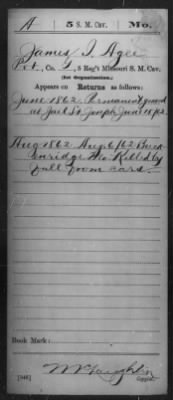 A | 5 S. M. Cav. | Mo.
James I. Agee
Pvt, Co. L, 5 Reg't Missouri S. M. Cav.
(1st Organization.)
Appears on Returns as follows:
June 1862 Permanent guard
at Jail St. Joseph June 18/62
Aug 1862 Aug 6/62 Breck-
enridge Mo Killed by
fall from cars.
Book Mark:
McLaughlin
(546) Copyist.